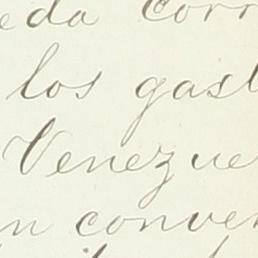 eda corr
los gast
Venezue
n conver